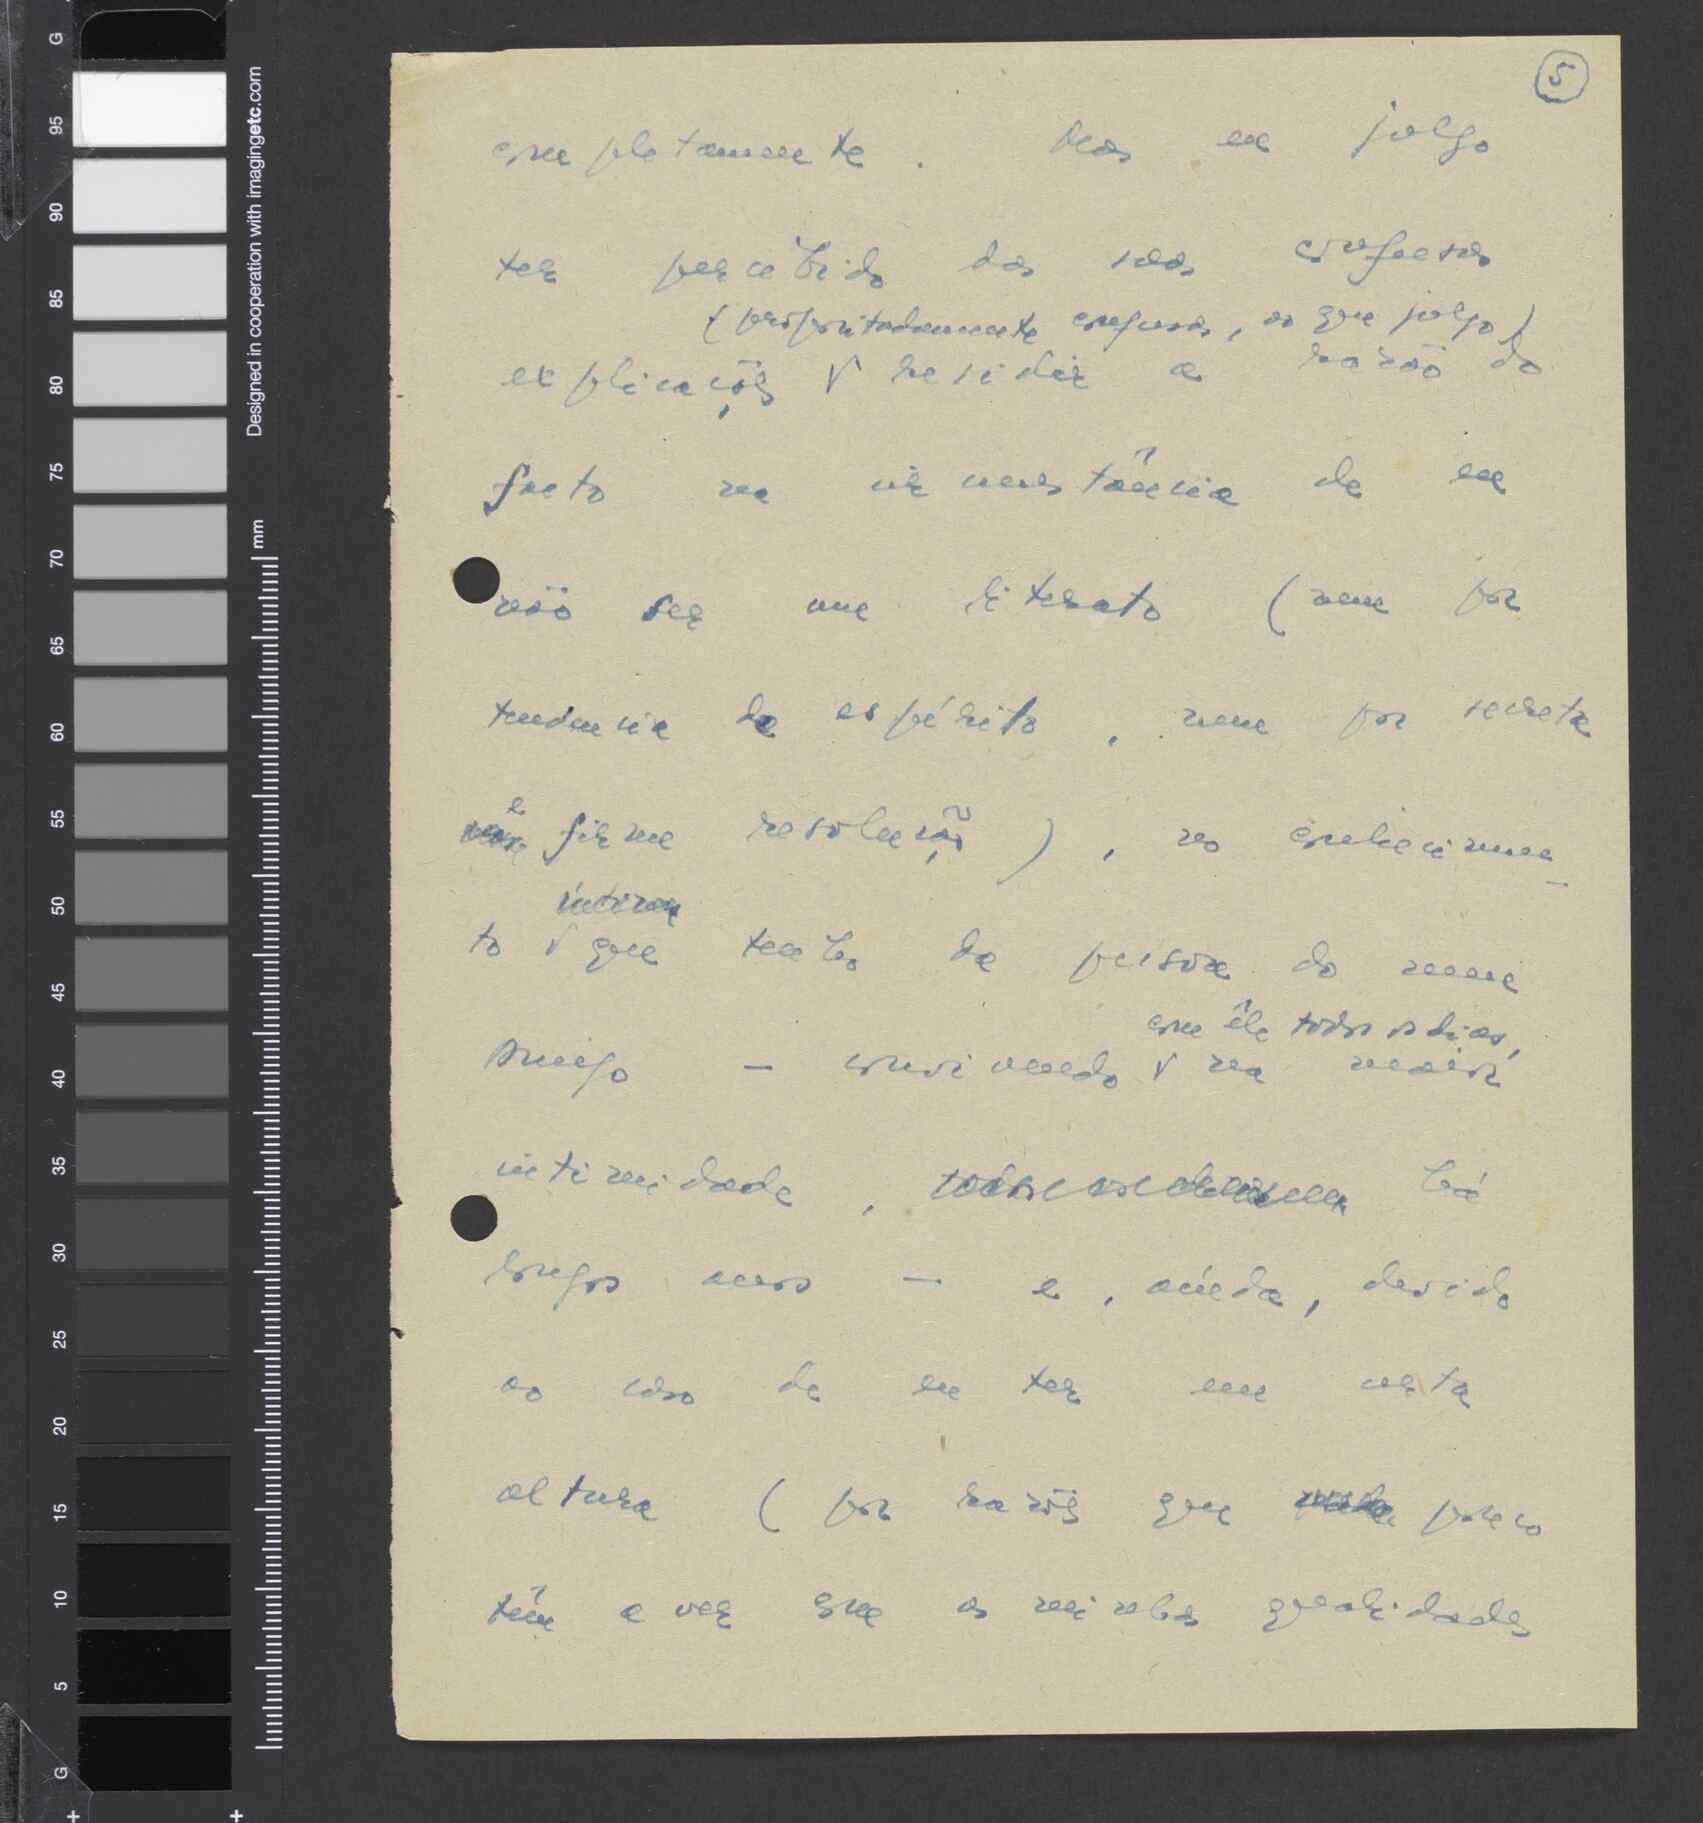 5
completamente. Mas eu julgo
ter percebido das suas confusas
(propositadamente confusas, ao que julgo)
explicações residir a razão do
facto na circunstância de eu
não ser um literato (nem por
tendencia de espírito, nem por secreta
e
firme resolução), no conhecimen-
íntimo
to que tenho da pessoa do meu
com êle todos os dias,
Amigo — convivendo na maior
intimidade, há
longos anos — e, aínda, devido
ao caso de eu ter em certa
altura (por razões que pouco
têm a ver com as minhas qualidades
G
95
90
85
80
75
70
65
60
55
50
45
40
35
30
25
20
15
10
5
G
Designed in cooperation with imagingetc.com
mm